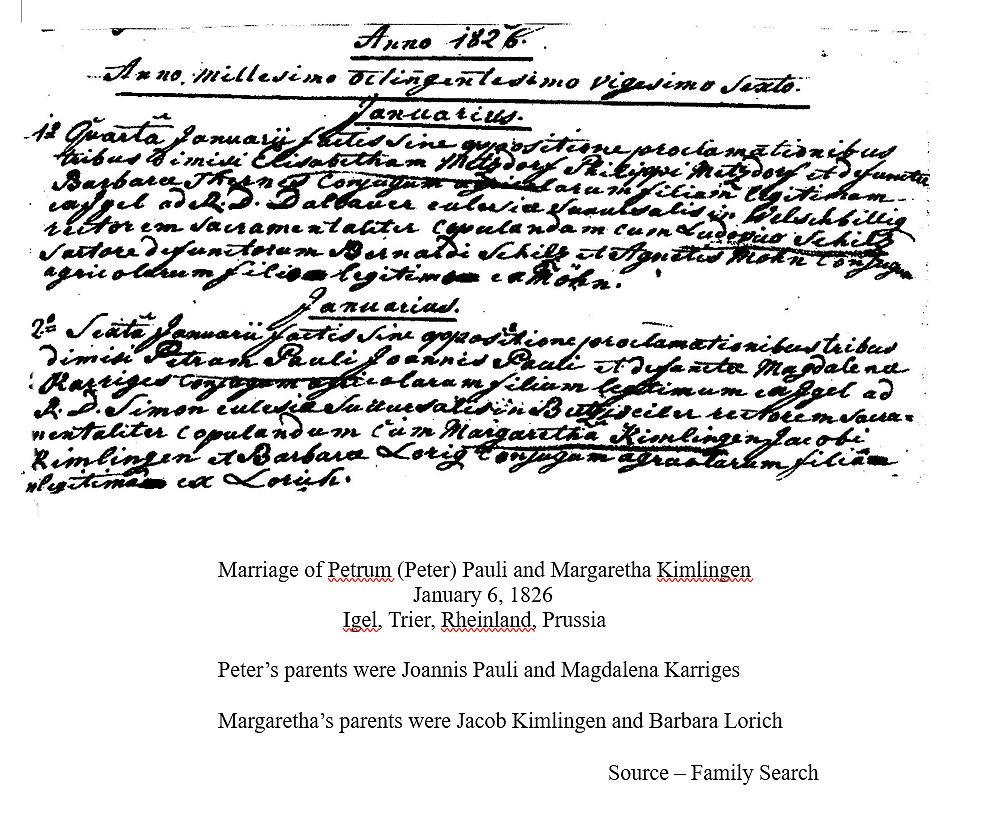 Anno 1826.
Anno. millesimo octingentesimo vigesimo Sexto.
Januarius.
1º Quarta Januarii factis sine oppositione proclamationibus
tribus Dimisi Elisabetham Metzdorf Philippi Metzdorf et defunctæ
Barbaræ Thernes Conjugum agricolarum filiam legitimam
ex Igel ad R. D. Dalbauer eclesiæ Sucursalis in Welschbillig
rectorem Sacramentaliter Copulandam cum Ludovico Schilz
Sartore defunctorum Bernardi Schilz et Agnetis Mohn Conjugum
agricolarum filio legitimo ex Möhn.
Januarius.
2º Sexta Januarii factis sine oppositione proclamationibus tribus
dimisi Petrum Pauli Joannis Pauli et defunctæ Magdalena
Karriges Conjugum agricolarum filium legitimum ex Igel ad
R. D. Simon eclesiæ Sucursalis in rectorem Sacra=
mentaliter Copulandum Cum Margaretha Kimlingen Jacobi
Kimlingen et Barbaræ Lorig Conjugum filia
legitima ex Lorich.
Marriage of Petrum (Peter) Pauli and Margaretha Kimlingen
January 6, 1826
Igel, Trier, Rheinland, Prussia
Peter’s parents were Joannis Pauli and Magdalena Karriges
Margaretha’s parents were Jacob Kimlingen and Barbara Lorich
Source – Family Search